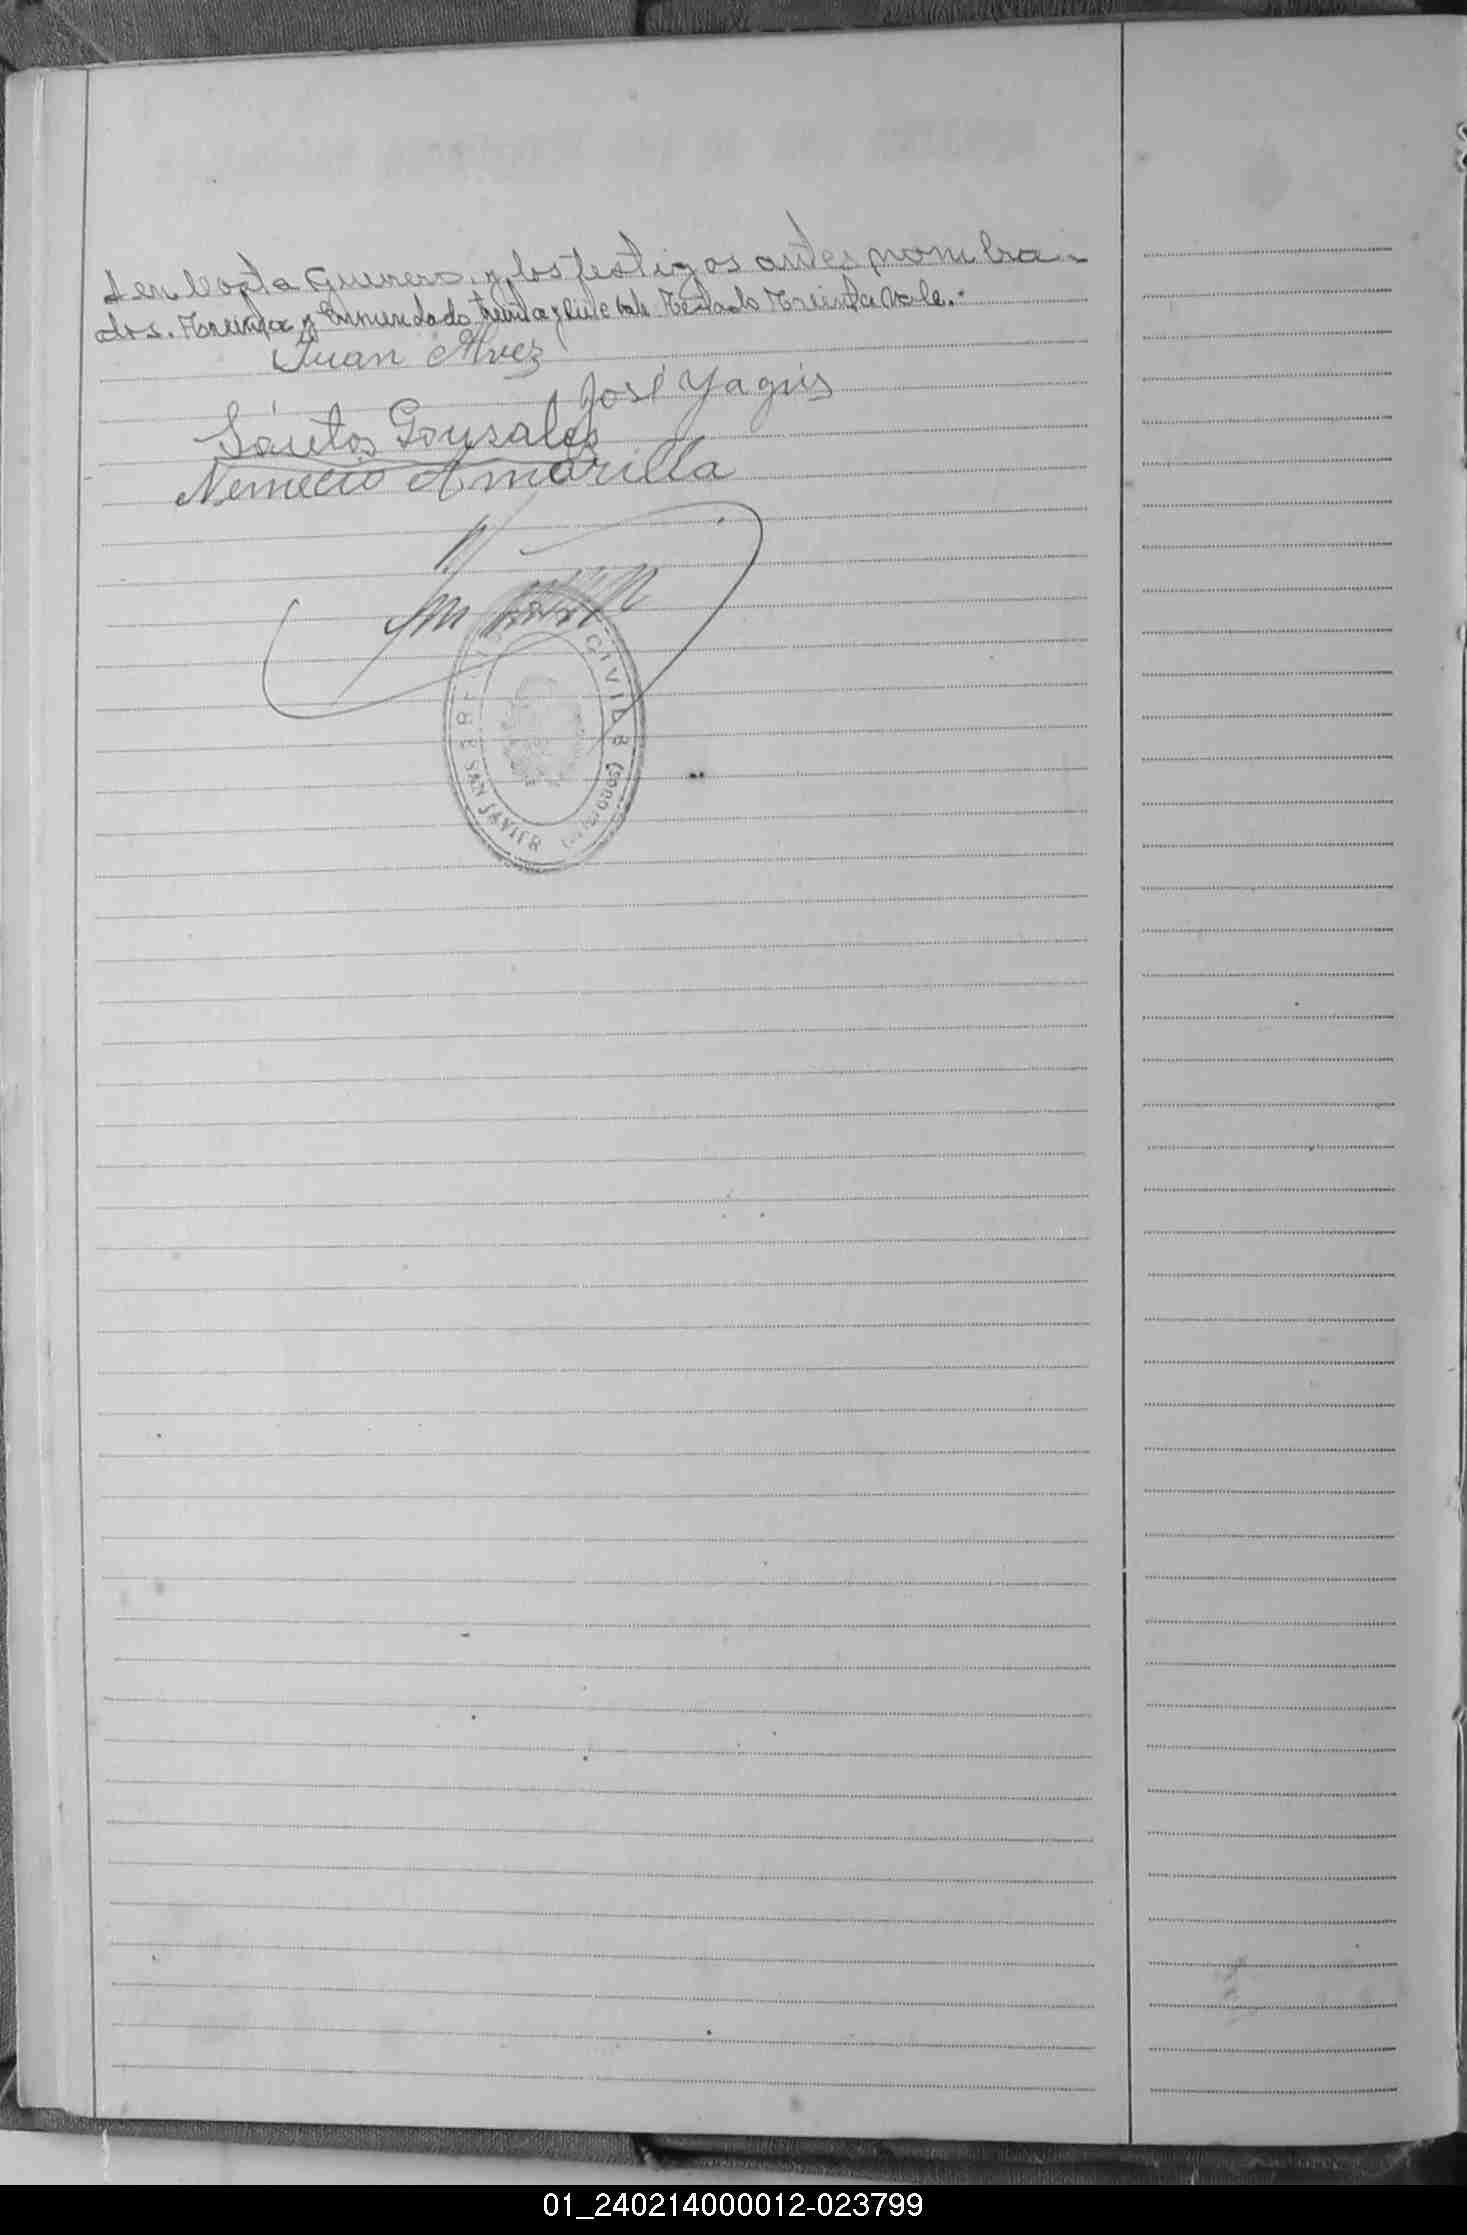 Guerrero, y los testigos antes nombra-
dos. Treinta y Enmendado treinta y siete vale Testado Treinta Vale.-
Juan Alvez
José Yagüis
Santos Gonsales
Nemecio Amarilla
CIVIL 8 (
SAN JAVIER
01_240214000012-023799